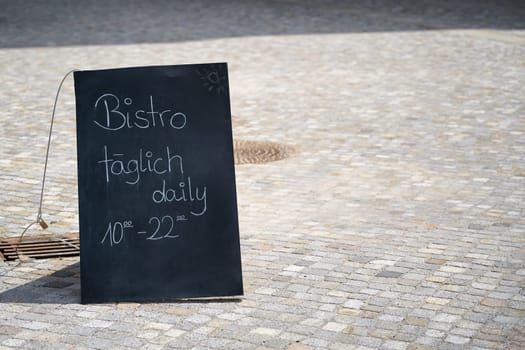 Bistro
täglich
daily
10⁰⁰-22⁰⁰